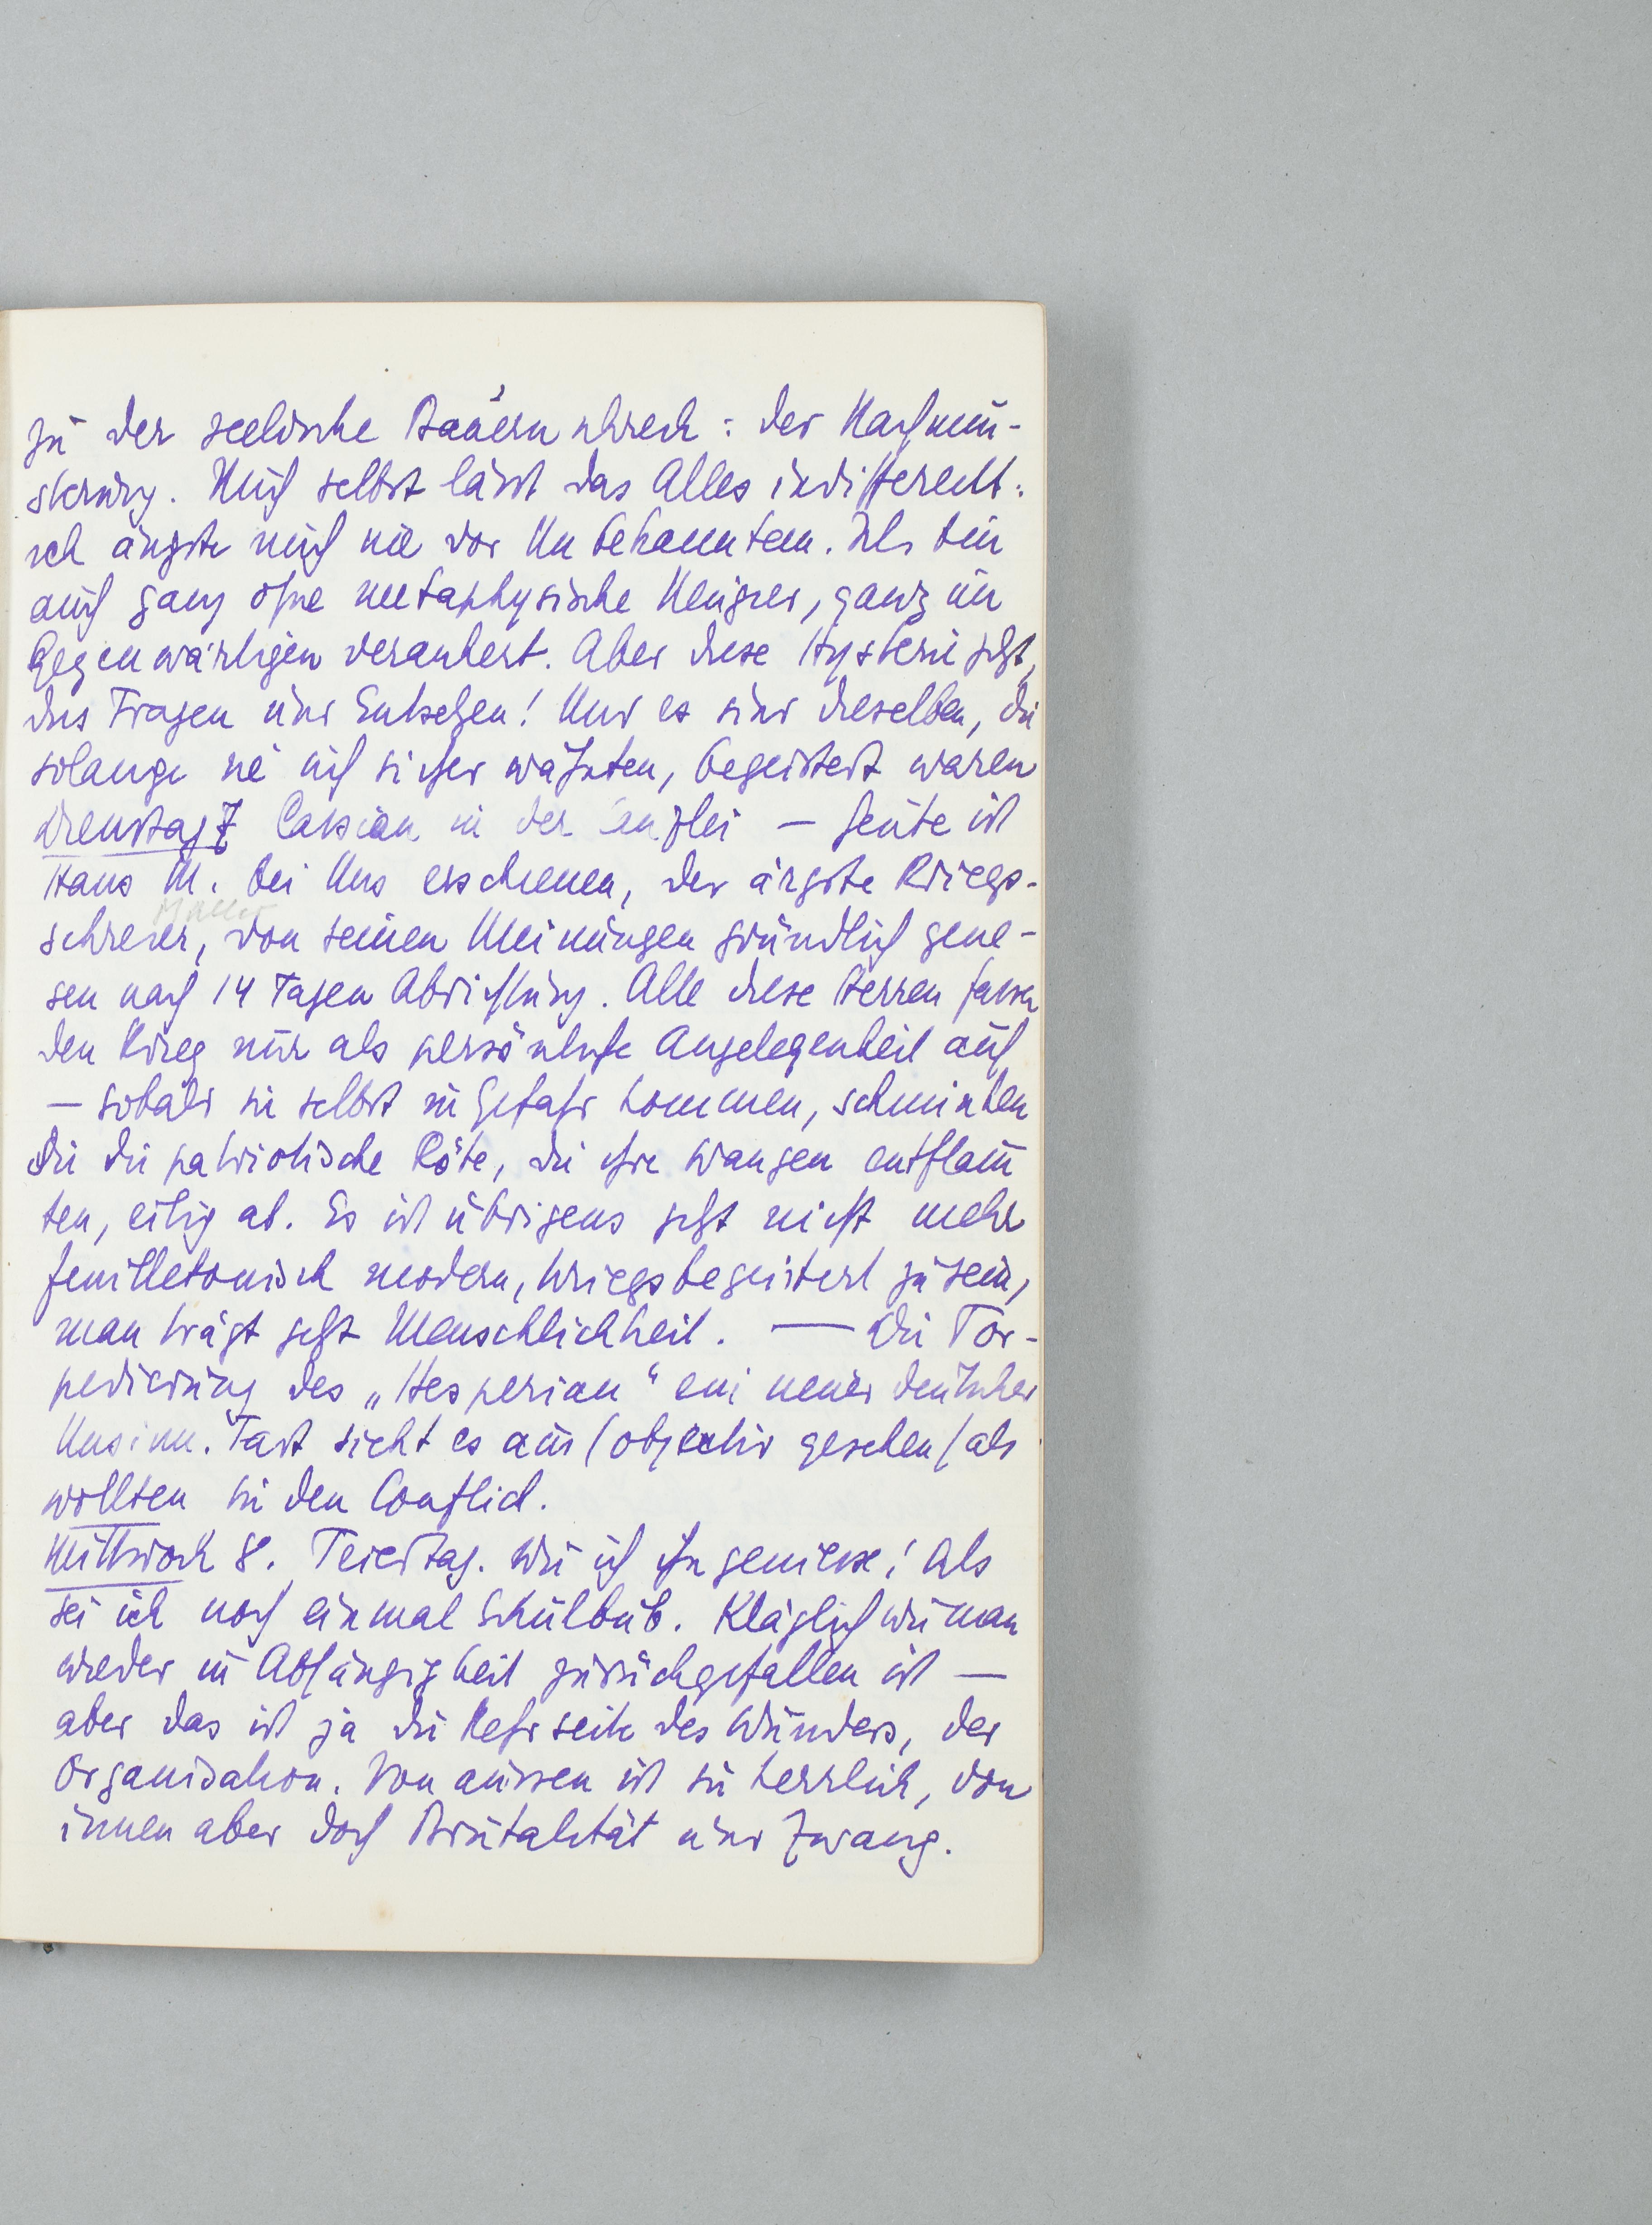 zu der seelische Bauernschreck: der Nachmu-
sterung. Mich selbst lässt das Alles indifferent:
ich ängste mich nie vor Unbekanntem. Ich bin
auch ganz ohne metaphysische Neugier, ganz im
Gegenwärtigen verankert. Aber diese Hysterie jetzt,
dies Fragen und Entsetzen! Und es sind dieselben, die
solange sie sich sicher wähnten, begeistert waren
Dienstag 7 in der Canzlei – heute ist
Hans M. bei Uns erschienen, der ärgste Kriegs-
Müller
schreier, von seinen Meinungen gründlich gene-
sen nach 14 Tagen Abrichtung. Alle diese Herren fassen
den Krieg nur als persönliche Angelegenheit auf
– sobald sie selbst in Gefahr kommen, schminken
die die patriotische Röte, die ihre Wangen entflam̄
ten, eilig ab. Es ist übrigens jetzt nicht mehr
feuilletonisch modern, kriegsbegeistert zu sein,
man trägt jetzt Menschlichheit. — Die Tor-
pedierung des „Hesperian“ ein neuer deutscher
Unsinn. Fast sieht es aus (objectiv gesehen) als
wollten sie den Conflict.
Mittwoch 8. Feiertag. Wie ich ihn geniesse! Als
sei ich noch einmal Schulbub. Kläglich wie man
wieder in Abhängigkeit zurückgefallen ist –
aber das ist ja die Kehrseite des Wunders, der
Organisation. Von aussen ist sie herrlich, von
innen aber doch Brutalität und Zwang.